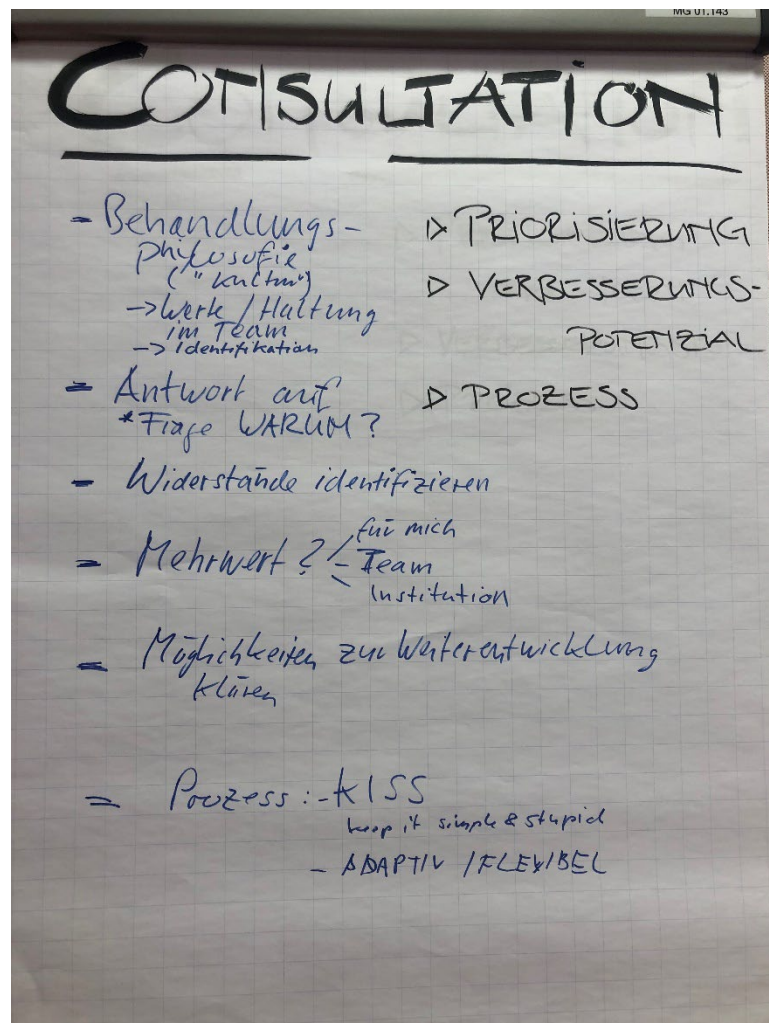 MG 01.143
CONSULTATION
- Behandlungs-
philosofie
("Kultur")
-> Werte / Haltung
im Team
-> Identifikation
- Antwort auf
*Frage WARUM?
- Widerstände identifizieren
- Mehrwert?
für mich
- Team
Institution
- Möglichkeiten zur Weiterentwicklung
klären
- Prozess: - KISS
keep it simple & stupid
- ADAPTIV / FLEXIBEL
▷ PRIORISIERUNG
▷ VERBESSERUNGS-
POTENZIAL
▷ PROZESS